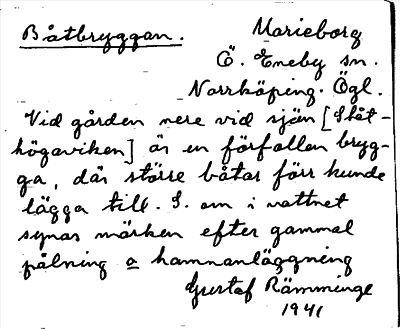 Båtbryggan.
Marieborg
Ö. Eneby sn.
Norrköping. Ögl.
Vid gården nere vid sjön [Slät-
högaviken] är en förfallen bryg-
ga, där större båtar förr kunde
lägga till. S. om i vattnet
synas märken efter gammal
pålning o hamnanläggning
Gustaf Rämminge
1941